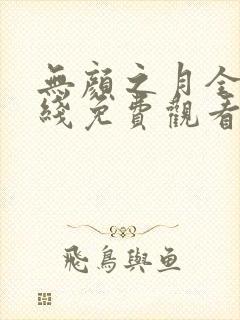 無顏之月全
綫免費觀看
飛鳥與魚